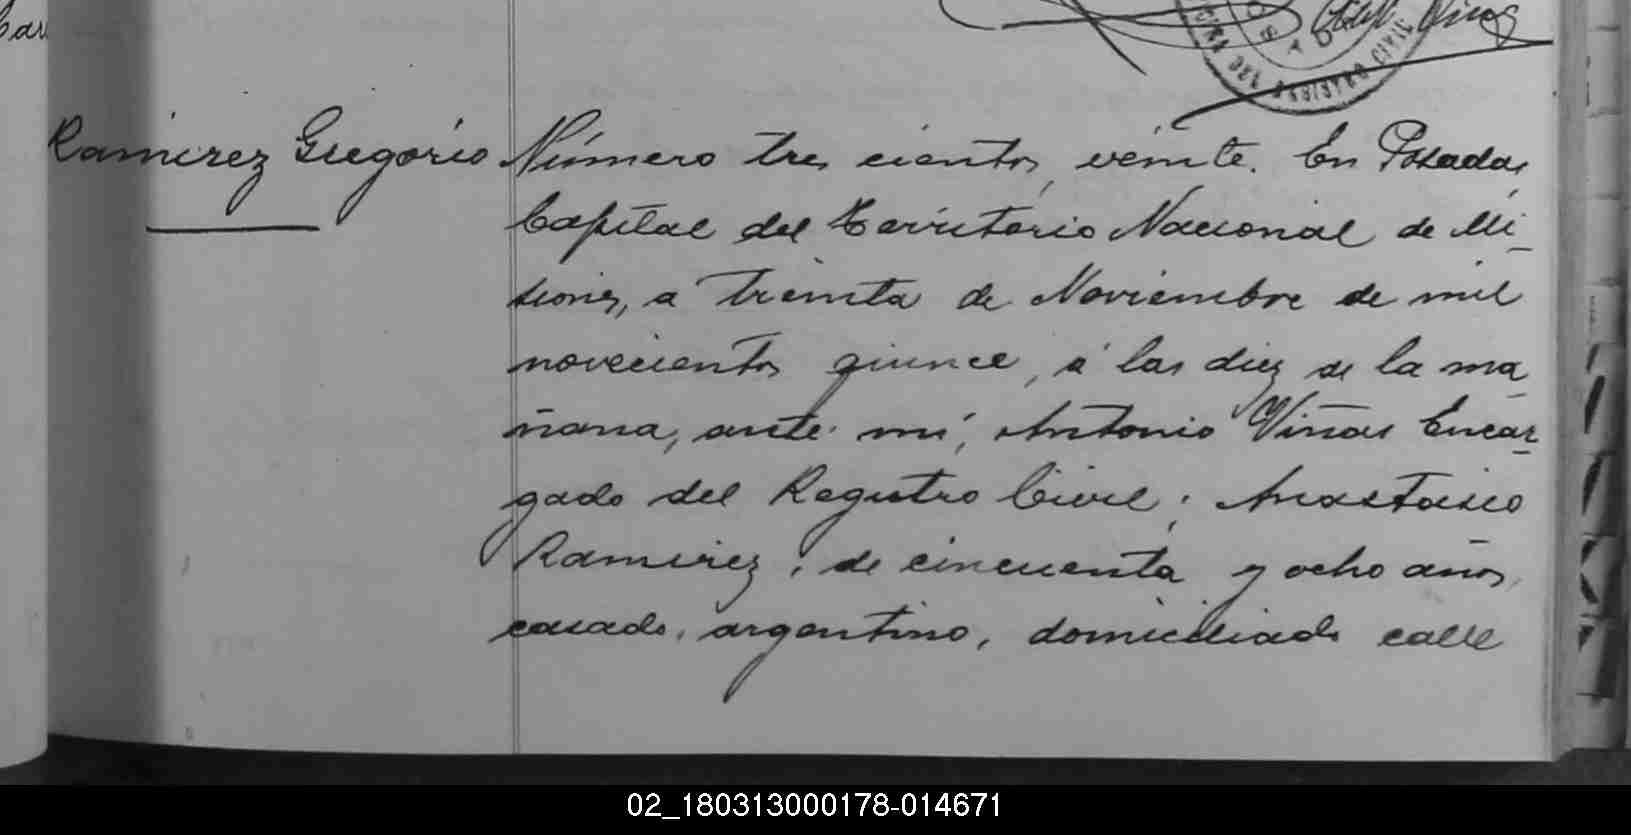 Ramirez Gregorio
Número tres cientos veinte. En Posadas
Capital del Territorio Nacional de Mi-
siones, a treinta de Noviembre de mil
novecientos quince, á las diez de la ma
ñana, ante mi, Antonio Viñas Encar-
gado del Registro Civil; Anastasio
Ramirez, de cincuenta y ocho años,
casado, argentino, domiciliado calle
02_180313000178-014671